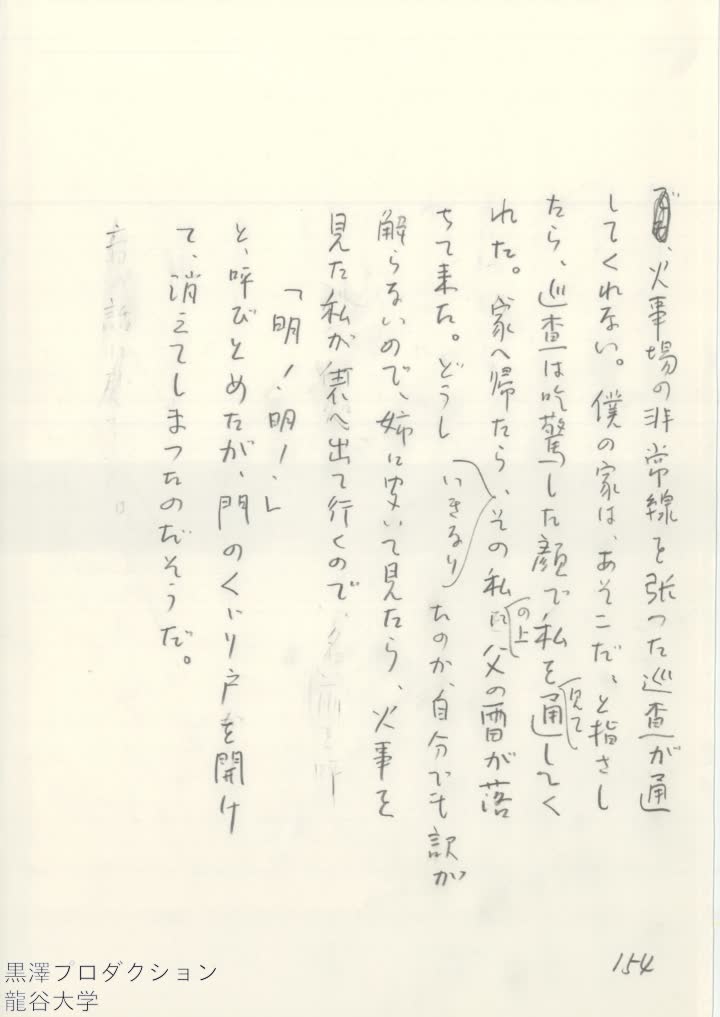 、火事場の非常線を張った巡査が通
してくれない。僕の家は、あそこだ、と指さし
たら、巡査は吃驚した顔で私を見て通してく
れた。家へ帰たら、いきなりその私の上に父の雷が落
ちて来た。どうしたのか、自分でも訳が
解らないので、姉に聞いて見たら、火事を
見た私が表へ出て行くので
「明！明！」
と、呼びとめたが、門のくゞり戸を開け
て、消えてしまつたのだそうだ。
154
黒澤プロダクション
龍谷大学